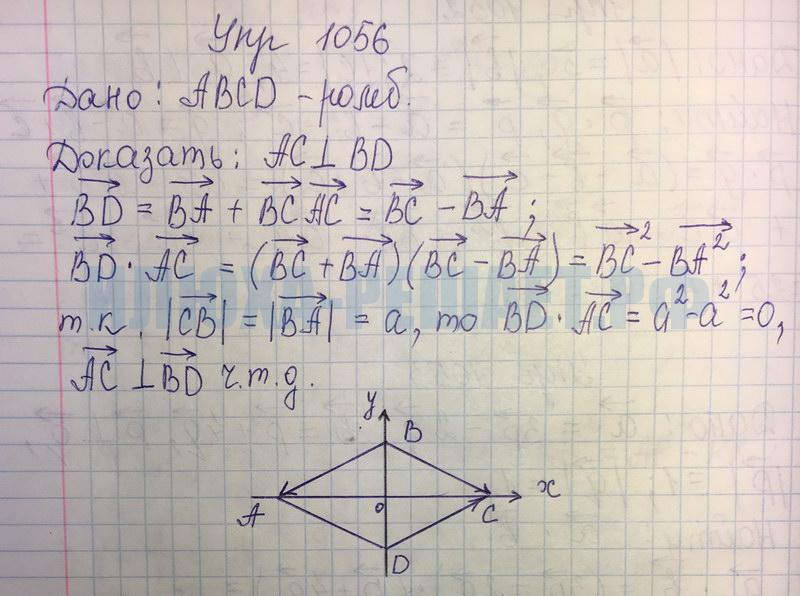 Упр 1056
Дано: ABCD - ромб.
Доказать: AC⊥BD
BD = BA + BC AC = BC - BA ;
BD · AC = (BC + BA)(BC - BA) = BC² - BA² ;
т.к. |CB| = |BA| = a, то BD · AC = a² - a² = 0,
AC ⊥ BD ч.т.д.
ИЛОХА-РЕШАЕТ.РФ
y
B
A
o
C
x
D